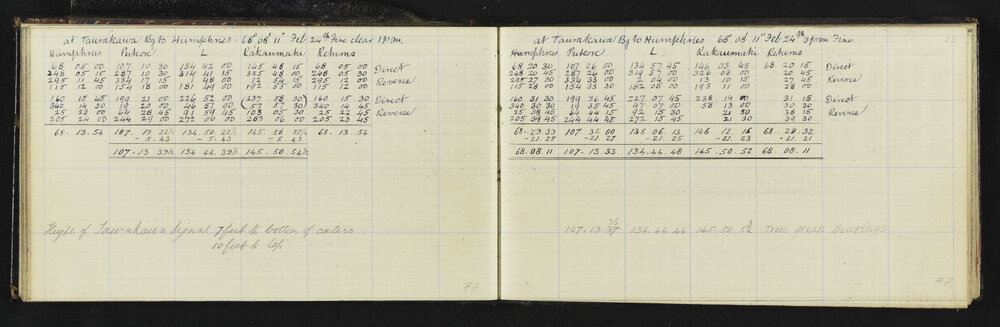 at Taurakawa Bg to Humphries - 68° 08' 11" Feb 24th Fine clear 1 p.m.
Humphries Pukore L Rakaumahi Returns
68 05 00 107 10 30 134 42 00 145 48 15 68 05 00 Direct
248 05 15 287 10 30 314 41 15 325 48 00 248 05 30
295 11 45 334 17 15 1 48 00 12 54 15 295 12 00 Reverse
115 12 00 154 18 00 181 49 00 192 55 00 115 12 00
160 15 45 199 21 00 226 52 00 237 58 30 160 15 30 Direct
340 14 30 19 20 00 46 51 00 57 57 30 340 14 45
25 23 00 64 28 45 91 59 45 103 05 30 25 22 45 Reverse
205 24 00 244 29 00 272 00 00 283 06 00 205 23 45
68. 13. 54 107 - 19 22½ 134. 50. 22½ 145. 56 37½ 68. 13 54
- 5. 43 - 5. 43 - 5. 43
107 - 13 39½ 134 44. 39½ 145. 50. 54½
Height of Taurakawa Signal 7 feet to bottom of calico
10 feet to top
72
at Taurakawa Bg to Humphries 68° 08' 11" Feb 24th 3 p.m Fine
Humphries Pukore L Rakaumahi Returns
68 20 30 107 26 00 134 57 45 146 03 45 68 20 15 Direct
248 20 45 287 26 00 314 57 00 326 03 00 20 45
295 27 30 334 33 00 2 04 00 13 10 15 27 45 Reverse
115 28 00 154 33 30 182 05 00 193 11 00 28 00
160 31 30 199 36 45 227 07 45 238 14 00 31 15 Direct
340 30 30 19 35 45 47 07 00 58 13 00 30 30
25 38 45 64 44 15 92 15 30 21 30 38 15 Reverse
205 39 45 244 44 45 272 15 45 21 30 39 45
68 - 29 39 107 35 00 135 06 13 146 12 15 68. 29. 32
- 21. 28 - 21. 27 - 21. 25 - 21. 23 - 21. 21
68. 08. 11 107. 13. 33 134. 44. 48 145. 50. 52 68. 08. 11
107. 13. 37 134. 44. 44 145. 50. 53 True Mean Bearings